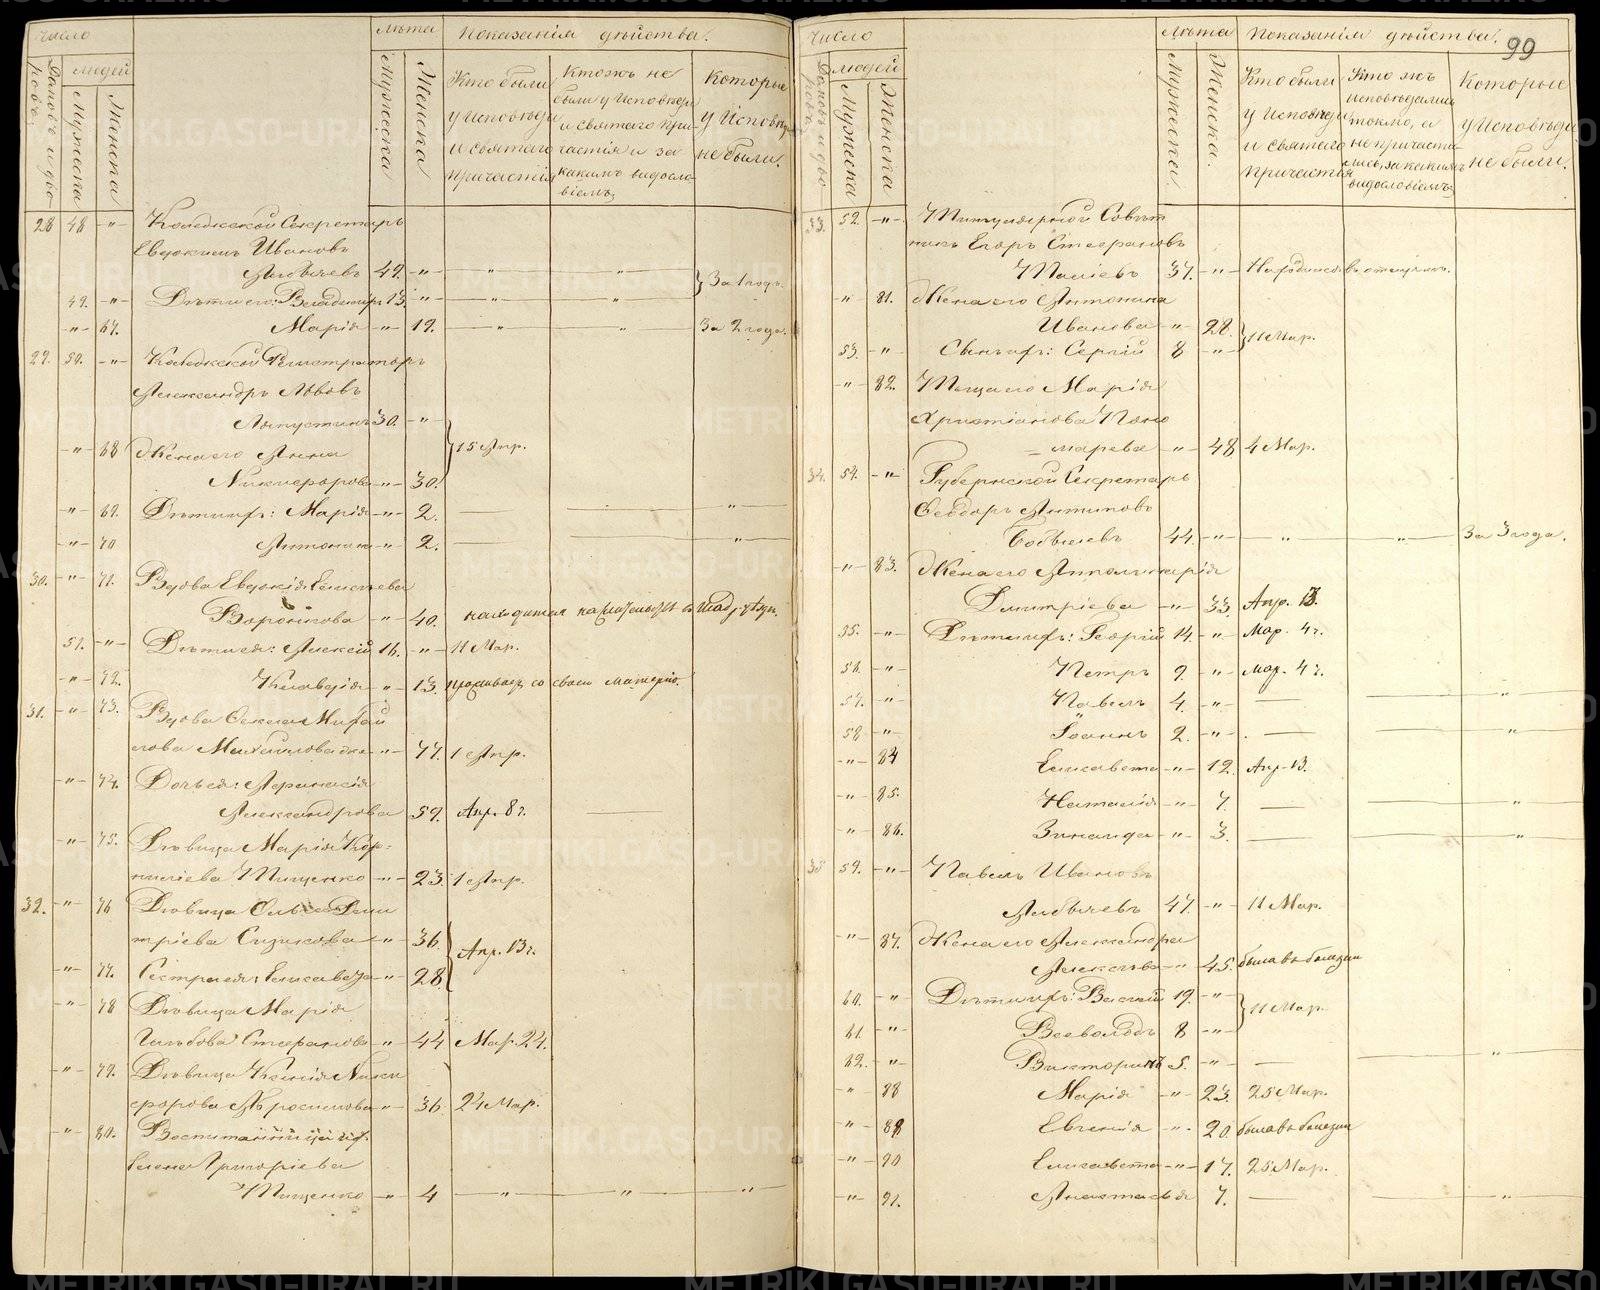 Число
Домовъ и дворовъ
людей
Мужеска
Женска
Лѣта
Мужеска
Женска
Показанiя дѣйства.
Кто были у Исповѣди и святаго причастiя
Ктожъ не были у Исповѣди и святаго причастiя и за какимъ видословiемъ
Которые у Исповѣди не были.
28 48 -"- Коллежской Секретарь
Евдокимъ Ивановъ
Любычевъ 49. -"- " -"-
49. -"- Дѣти его: Владимiръ 13. -"- " " } За 1 годъ.
-"- 67. Марiя -"- 19. " " За 2 года.
29. 50. -"- Коллежской Регистраторъ
Александръ Львовъ
Лопустинъ 30. -"-
-"- 68 Жена его Анна } 15 Апр.
Никифорова -"- 30.
-"- 69. Дѣти ихъ: Марiя -"- 2. "
-"- 70 Антонина -"- 2. "
30. -"- 71. Вдова Евдокiя Елисѣева
Воронкова -"- 40. находится на
51. -"- Дѣти ея: Алексѣй 16. -"- 11 Мар.
-"- 72. Клавдiя -"- 13. проживаетъ со своею матерью.
31. -"- 73. Вдова Фекла Михай
лова -"- 77. 1 Апр.
-"- 74. Дочь ея: Афанасiя
Александрова 59. Апр. 8 г.
-"- 75. Дѣвица Марiя Кор-
нилiева Тищенко -"- 23. 1 Апр.
32. -"- 76 Дѣвица Ольга Дми
трiева Сизикова -"- 36. } Апр. 13 г.
-"- 77. Сестра ея: Елисавета -"- 28.
-"- 78 Дѣвица Марiя
Глѣбова Стефанова -"- 44 Мар. 24.
-"- 79. Дѣвица Ксенiя Ники
форова -"- 36 24 Мар.
-"- 80. Воспитанница их.
Елена Григорiева
Тищенко -"- 4 " " "
99
Число
Домовъ и дворовъ
людей
Мужеска
Женска
Лѣта
Мужеска.
Женска.
Показанiя дѣйства.
Кто были у Исповѣди и святаго причастiя
Кто жъ исповѣдались токмо, а не причастились, за какимъ видословiемъ
Которые у Исповѣди не были.
33. 52. -"- Титулярной Совѣт
никъ Егоръ Стефановъ
Палiевъ 37. -"- Находился въ отлучкѣ.
" 81. Жена его Антонина
Иванова -"- 28. } 11 Мар.
53. -"- Сынъ ихъ: Сергiй 8 -"-
-"- 82. Теща его Марiя
Христiанова Поно
марева -"- 48 4 Мар.
34. 54. -"- Губернской Секретарь
Феодоръ Антиповъ
Бобылевъ 44. -"- " " За 3 года.
-"- 83. Жена его Апполинарiя
Дмитрiева -"- 33. Апр. 13.
55. -"- Дѣти ихъ: Георгiй 14 -"- Мар. 4 г.
56. -"- Петръ 9 -"- Мар. 4 г.
57. -"- Павелъ 4. -"- "
58 -"- Iоаннъ 2. -"- "
-"- 84 Елисавета -"- 12. Апр. 13.
-"- 85. Наталiя -"- 7. "
-"- 86. Зинаида -"- 3. "
35 59. -"- Павелъ Ивановъ
Любычевъ 47. -"- 11 Мар.
-"- 87. Жена его Александра
Алексѣева -"- 45. была въ болезни
60. -"- Дѣти ихъ: Василiй 19. -"- } 11 Мар.
61. -"- Всеволодъ 8 -"-
62. -"- Викторинъ 5. -"- "
" 88 Марiя -"- 23. 25 Мар.
-"- 89 Евгенiя -"- 20. была въ болезни
-"- 90 Елисавета -"- 17. 25 Мар.
-"- 91. Анастасья 7. "
METRIKI.GASO-URAL.RU